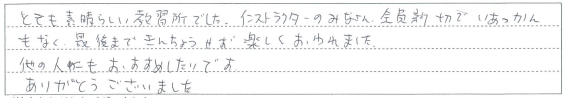 とても素晴らしい教習所でした。インストラクターのみなさん、全員親切でいあっかん
もなく、最後まできんちょうせず楽しくおわれました。
他の人にもおすすめしたいです
ありがとうございました